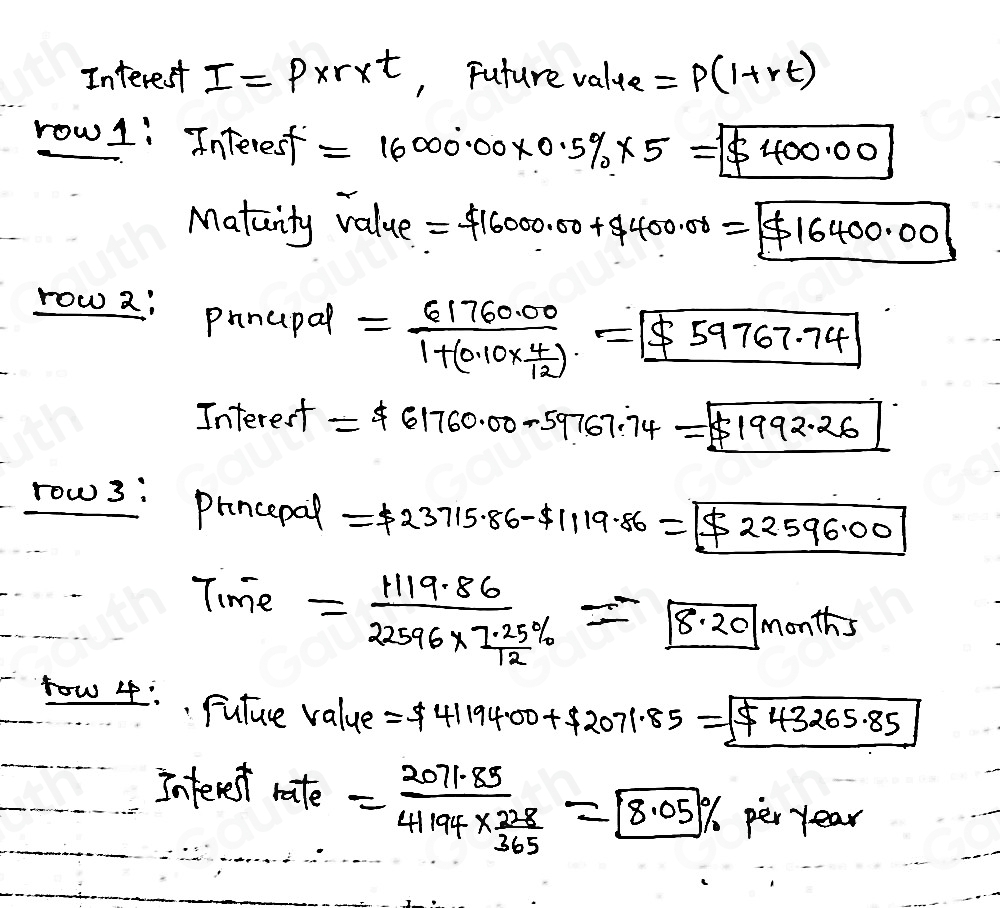 Interest I = P×r×t, Future value = P(1+rt)
row 1: Interest = 16000.00×0.5%×5 = $400.00
Maturity value = $16000.00+$400.00 = $16400.00
row 2: Principal = 61760.00 / 1+(0.10×4/12). = $59767.74
Interest = $61760.00-59767.74 = $1992.26
row 3: Principal = $23715.86-$1119.86 = $22596.00
Time = 1119.86 / 22596×7.25%/12 = 8.20 months
row 4: Future value = $41194.00+$2071.85 = $43265.85
Interest rate = 2071.85 / 41194×228/365 = 8.05% per year